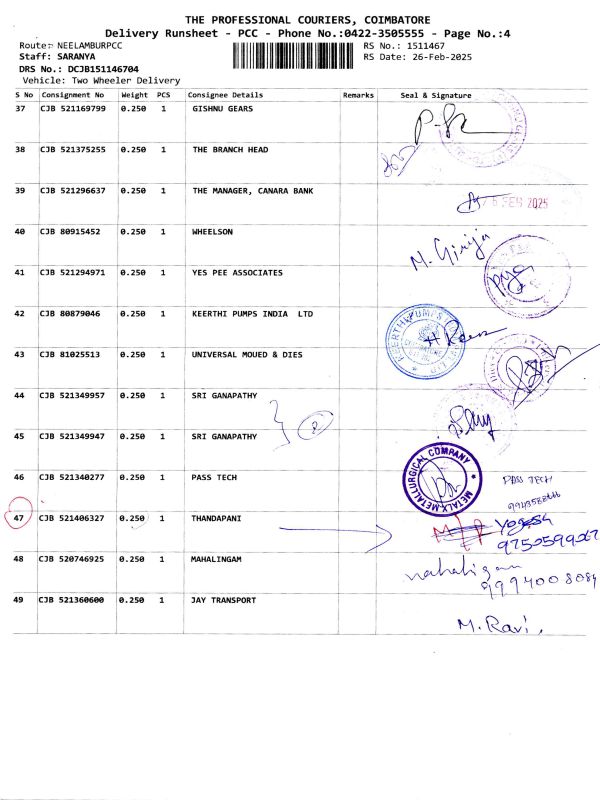 THE PROFESSIONAL COURIERS, COIMBATORE
Delivery Runsheet - PCC - Phone No.:0422-3505555 - Page No.:4
Route: NEELAMBURPCC
RS No.: 1511467
Staff: SARANYA
RS Date: 26-Feb-2025
DRS No.: DCJB151146704
Vehicle: Two Wheeler Delivery
S No Consignment No Weight PCS Consignee Details Remarks Seal & Signature
37 CJB 521169799 0.250 1 GISHNU GEARS
38 CJB 521375255 0.250 1 THE BRANCH HEAD
39 CJB 521296637 0.250 1 THE MANAGER, CANARA BANK
FEB 2025
40 CJB 80915452 0.250 1 WHEELSON
M. Girija
41 CJB 521294971 0.250 1 YES PEE ASSOCIATES
42 CJB 80879046 0.250 1 KEERTHI PUMPS INDIA LTD
KEERTHI PUMPS
43 CJB 81025513 0.250 1 UNIVERSAL MOUED & DIES
44 CJB 521349957 0.250 1 SRI GANAPATHY
2
45 CJB 521349947 0.250 1 SRI GANAPATHY
46 CJB 521340277 0.250 1 PASS TECH
METALX-METALLURGICAL COMPANY
PASS TECH
47 CJB 521406327 0.250 1 THANDAPANI
Yogesh
9750599067
48 CJB 520746925 0.250 1 MAHALINGAM
mahalingam
9994008084
49 CJB 521360600 0.250 1 JAY TRANSPORT
M. Ravi.